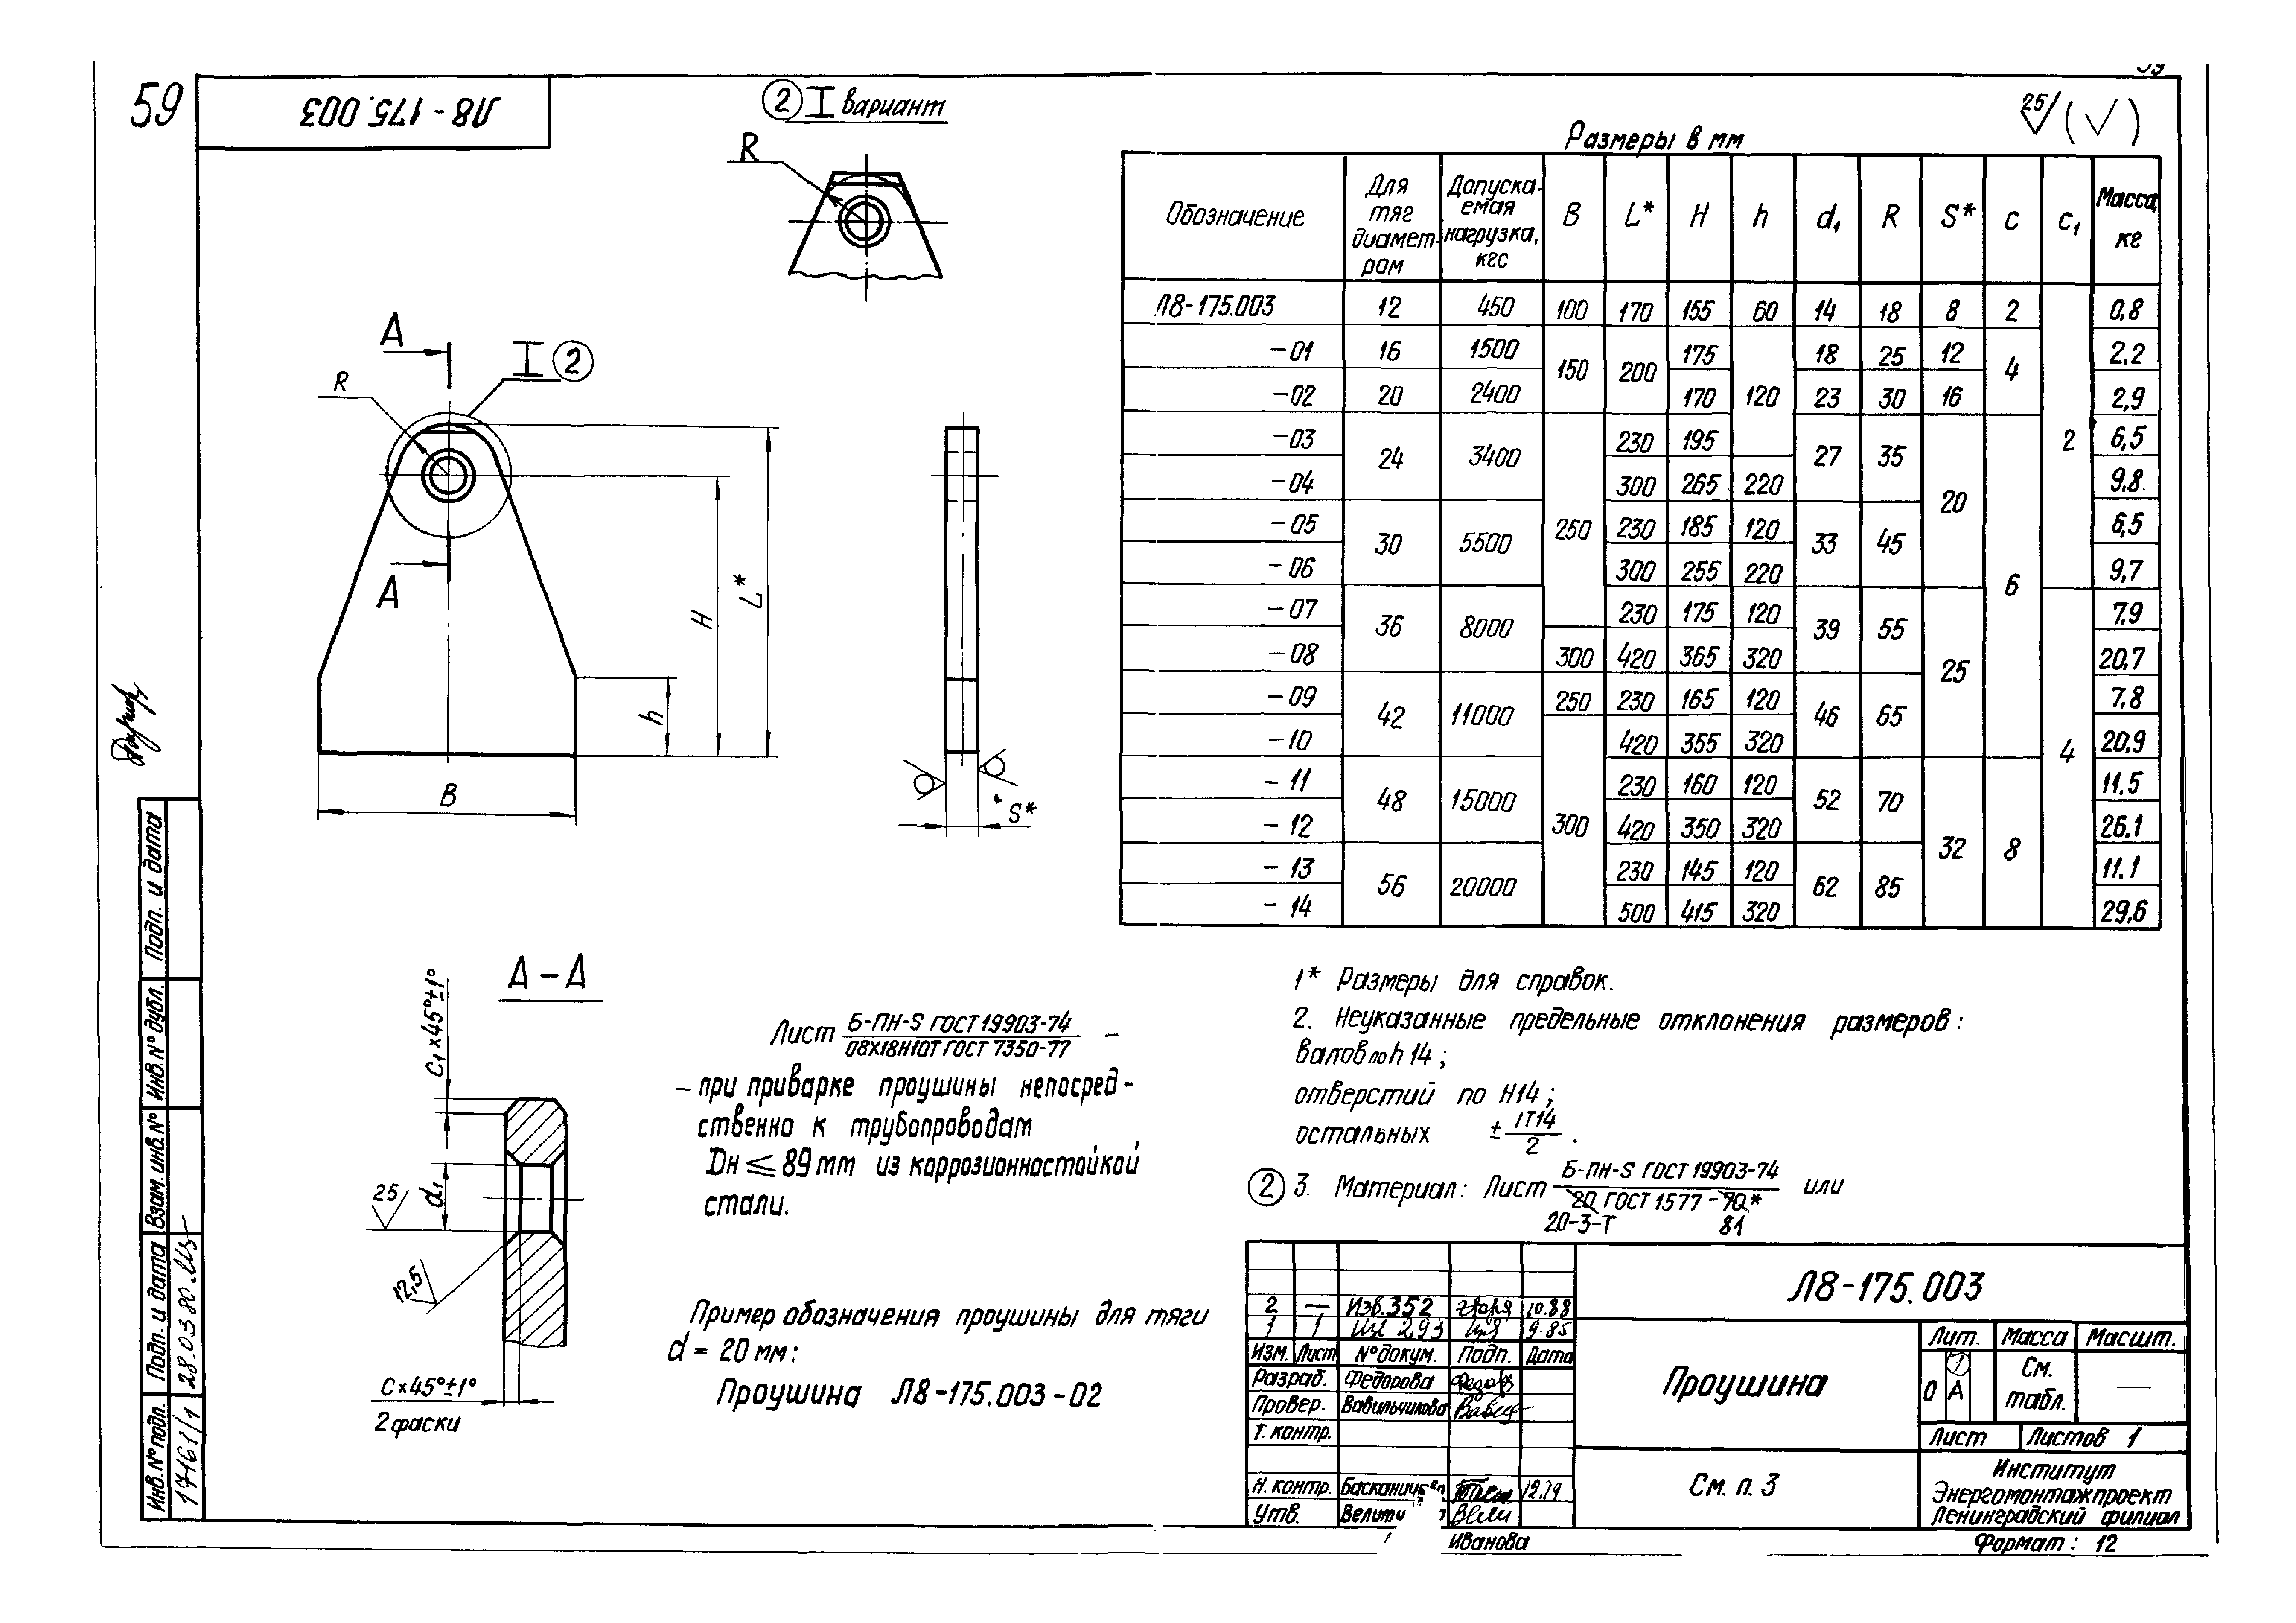 59
Л8-175.003
② I вариант
R
А
I ②
R
А
H
L*
h
B
S*
25 (√)
Размеры в мм
Обозначение | Для тяг диамет-ром | Допуска-емая нагрузка, кгс | B | L* | H | h | d₁ | R | S* | c | c₁ | Масса, кг
Л8-175.003 | 12 | 450 | 100 | 170 | 155 | 60 | 14 | 18 | 8 | 2 | 2 | 0,8
-01 | 16 | 1500 | 150 | 200 | 175 | 120 | 18 | 25 | 12 | 4 | 2,2
-02 | 20 | 2400 | 170 | 23 | 30 | 16 | 2,9
-03 | 24 | 3400 | 250 | 230 | 195 | 27 | 35 | 20 | 6 | 6,5
-04 | 300 | 265 | 220 | 9,8
-05 | 30 | 5500 | 230 | 185 | 120 | 33 | 45 | 6,5
-06 | 300 | 255 | 220 | 9,7
-07 | 36 | 8000 | 230 | 175 | 120 | 39 | 55 | 25 | 4 | 7,9
-08 | 300 | 420 | 365 | 320 | 20,7
-09 | 42 | 11000 | 250 | 230 | 165 | 120 | 46 | 65 | 7,8
-10 | 300 | 420 | 355 | 320 | 20,9
-11 | 48 | 15000 | 230 | 160 | 120 | 52 | 70 | 32 | 8 | 11,5
-12 | 420 | 350 | 320 | 26,1
-13 | 56 | 20000 | 230 | 145 | 120 | 62 | 85 | 11,1
-14 | 500 | 415 | 320 | 29,6
А-А
c₁×45°±1°
d₁
25
12,5
c×45°±1°
2 фаски
Лист Б-ПН-S ГОСТ 19903-74 / 08Х18Н10Т ГОСТ 7350-77 –
– при приварке проушины непосред-
ственно к трубопроводам
Dн ≤ 89 мм из коррозионностойкой
стали.
Пример обозначения проушины для тяги
d = 20 мм:
Проушина Л8-175.003-02
1* Размеры для справок.
2. Неуказанные предельные отклонения размеров:
валов по h14;
отверстий по H14;
остальных ± IT14/2.
② 3. Материал: Лист Б-ПН-S ГОСТ 19903-74 / 20 ГОСТ 1577-70* или
20-3-Т 81
Л8-175.003
2 — Изв.352 10.88
1 1 293 9-85
Изм. Лист № докум. Подп. Дата
Разраб. Федорова
Провер. Вавильчикова
Т. контр.
Н. контр. 12.79
Утв.
Проушина
Лит. Масса Масшт.
0 А ① См. табл. —
Лист Листов 1
См. п. 3
Институт
Энергомонтажпроект
Ленинградский филиал
Иванова
Формат: 12
Подп. и дата
Инв.№ дубл.
Взам. инв.№
Подп. и дата 28.03.80
Инв.№ подл. 17161/1